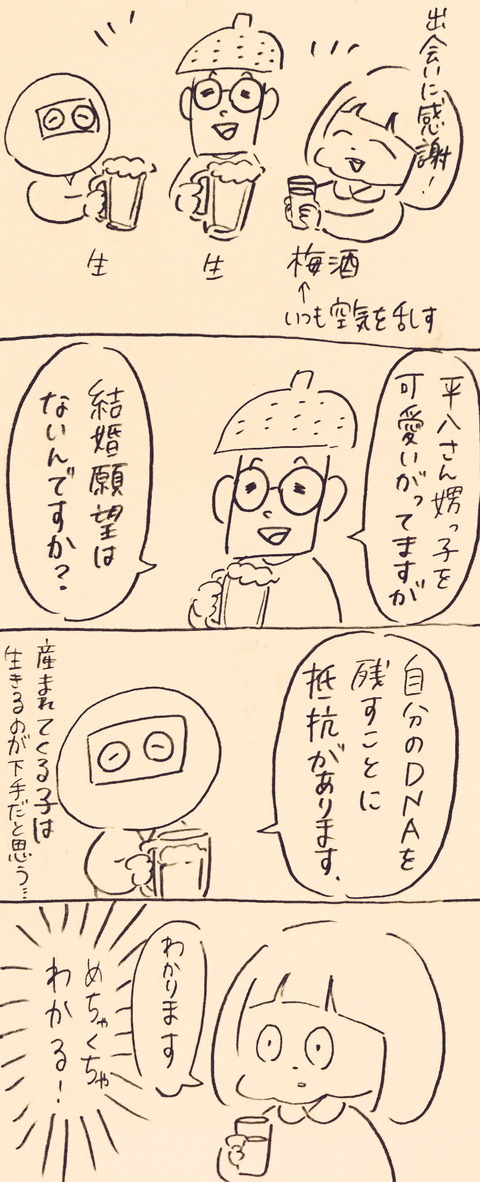 出会いに感謝!
生
生
梅酒
↑
いつも空気を乱す
平八さん甥っ子を
可愛いがってますが
結婚願望は
ないんですか?
自分のDNAを
残すことに
抵抗があります.
産まれてくる子は
生きるのが下手だと思う…
わかります
めちゃくちゃ
わかる!